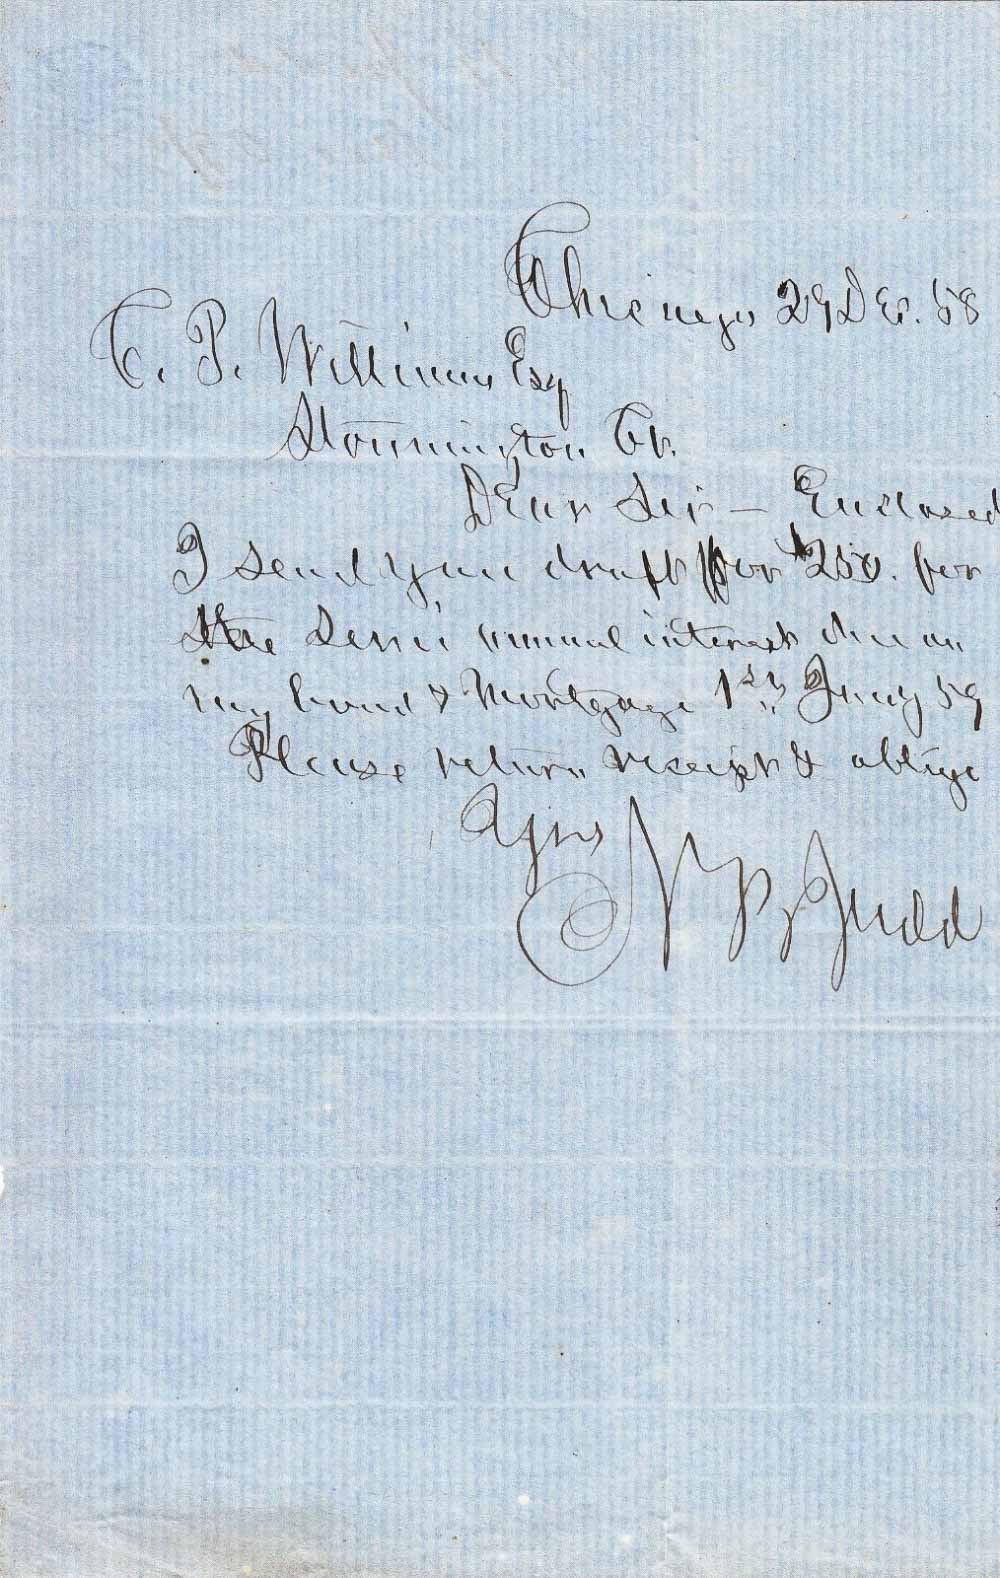 Chicago 29 Dec. 58
C. P. Williams Esq
Stonnington Ct.
Dear Sir — Enclosed
I send you draft for $250. for
the Semi annual interest due on
my bond & Mortgage 1st Jany 59
Please return receipt & oblige
Yours
N B Judd